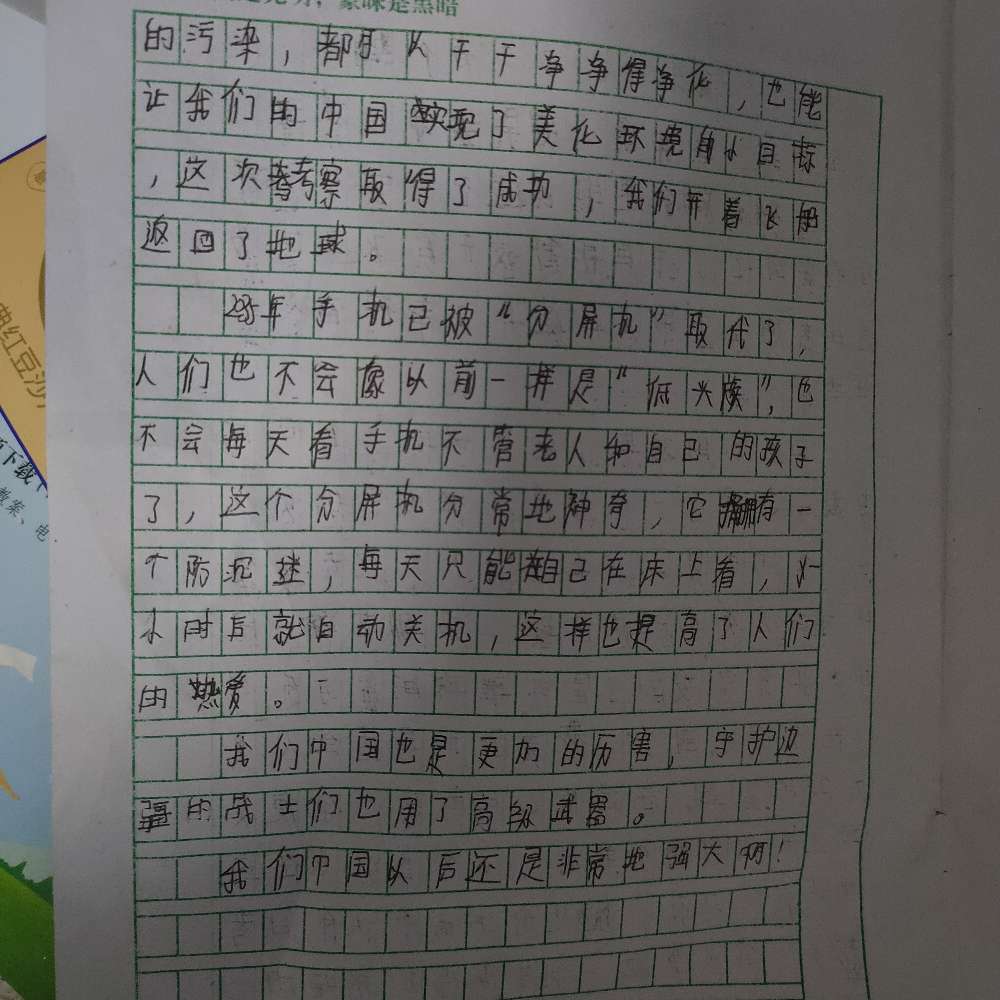 蒙昧是黑暗
的污染，都可以干干净净得净化，也能
让我们的中国实现了美化环境的小目标
，这次考察取得了成功，我们开着飞船
返回了地球。
2035年手机已被“分屏机”取代了，
人们也不会像以前一样是“低头族”，也
不会每天看手机不管老人和自己的孩子
了，这个分屏机分常地神奇，它拥有一
个防沉迷，每天只能自己在床上看，
小时后就自动关机，这样也提高了人们
的热爱。
我们中国也是更加的历害，守护边
疆的战士们也用了高级武器。
我们中国以后还是非常地强大啊！
典红豆沙
下载
教案、电